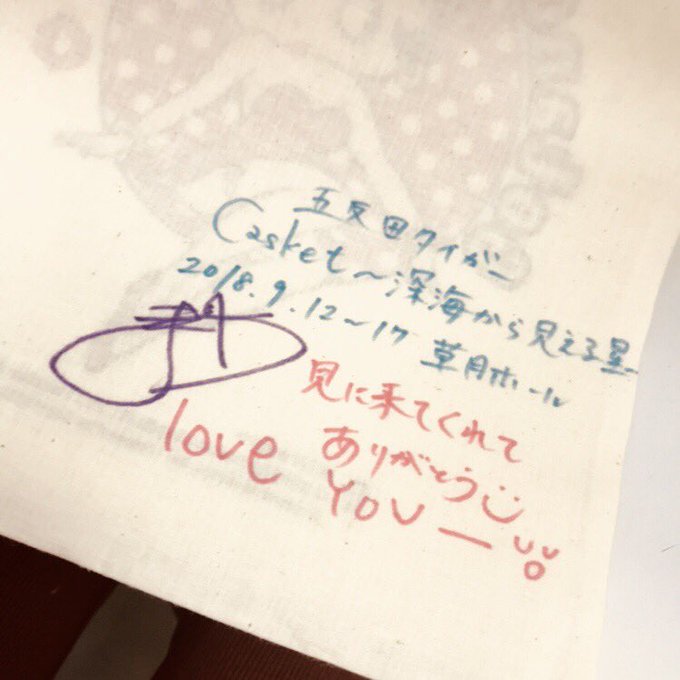 五反田タイガー
Casket～深海から見える星
2018.9.12～17 草月ホール
見に来てくれて
ありがとう
love YOUー